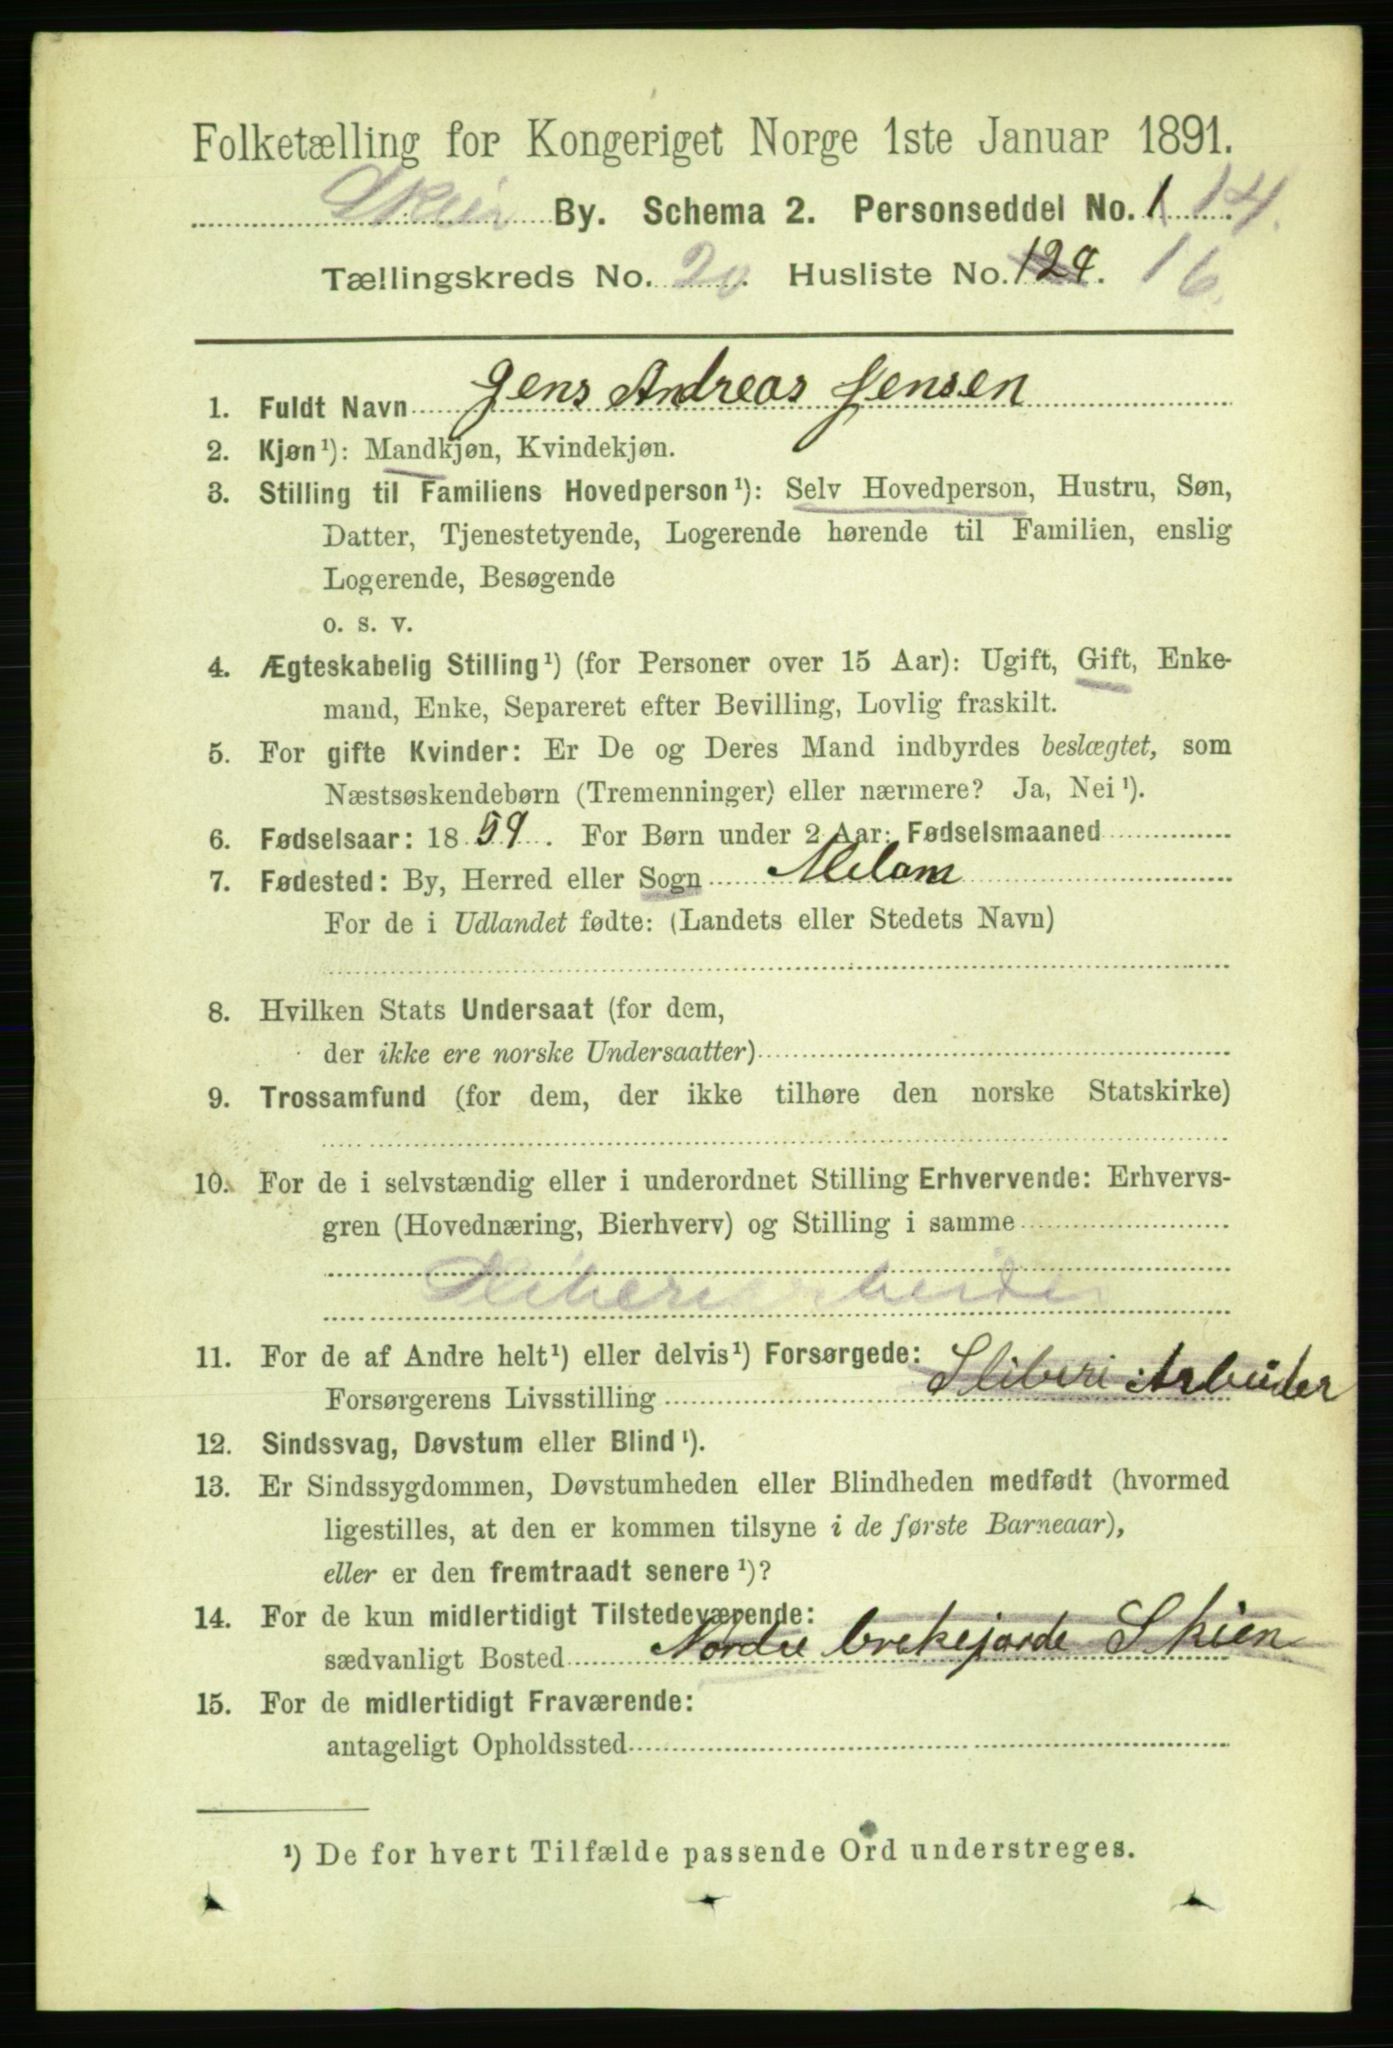 Folketælling for Kongeriget Norge 1ste Januar 1891.
Skien By. Schema 2. Personseddel No. 1 14.
Tællingskreds No. 20. Husliste No. 124. 16.
1. Fuldt Navn Jens Andreas Jensen
2. Kjøn¹): Mandkjøn, Kvindekjøn.
3. Stilling til Familiens Hovedperson¹): Selv Hovedperson, Hustru, Søn,
Datter, Tjenestetyende, Logerende hørende til Familien, enslig
Logerende, Besøgende
o. s. v.
4. Ægteskabelig Stilling¹) (for Personer over 15 Aar): Ugift, Gift, Enke-
mand, Enke, Separeret efter Bevilling, Lovlig fraskilt.
5. For gifte Kvinder: Er De og Deres Mand indbyrdes beslægtet, som
Næstsøskendebørn (Tremenninger) eller nærmere? Ja, Nei¹).
6. Fødselsaar: 1859. For Børn under 2 Aar: Fødselsmaaned
7. Fødested: By, Herred eller Sogn Melom
For de i Udlandet fødte: (Landets eller Stedets Navn)
8. Hvilken Stats Undersaat (for dem,
der ikke ere norske Undersaatter)
9. Trossamfund (for dem, der ikke tilhøre den norske Statskirke)
10. For de i selvstændig eller i underordnet Stilling Erhvervende: Erhvervs-
gren (Hovednæring, Bierhverv) og Stilling i samme
Sliberiarbeider
11. For de af Andre helt¹) eller delvis¹) Forsørgede:
Forsørgerens Livsstilling Sliberi Arbeider
12. Sindssvag, Døvstum eller Blind¹).
13. Er Sindssygdommen, Døvstumheden eller Blindheden medfødt (hvormed
ligestilles, at den er kommen tilsyne i de første Barneaar),
eller er den fremtraadt senere¹)?
14. For de kun midlertidigt Tilstedeværende:
sædvanligt Bosted Nordre brekejorde Skien
15. For de midlertidigt Fraværende:
antageligt Opholdssted
¹) De for hvert Tilfælde passende Ord understreges.